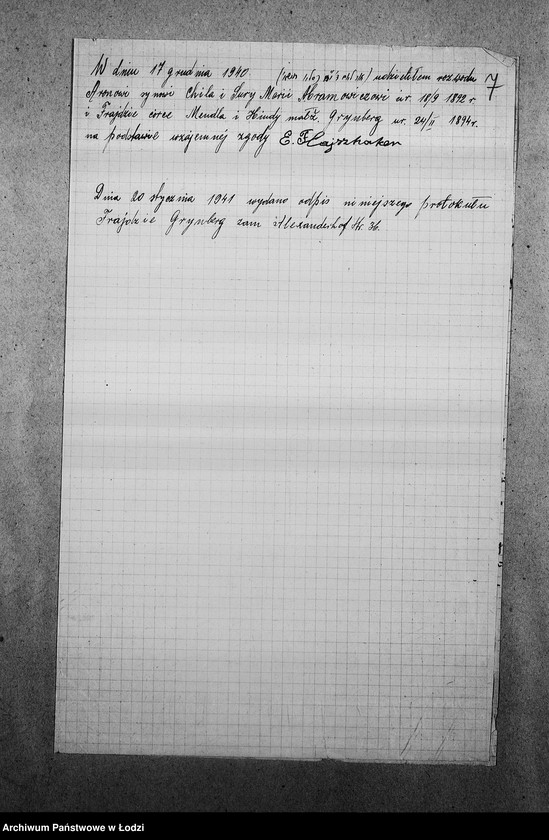 7
W dniu 17 grudnia 1940 udzieliłem rozwodu
Aronowi synowi Chila i Sury Marii Abramowiczowi ur. 18/9 1892 r
i Frajdzie córce Mendla i Hindy małż. Grynberg ur. 24/II 1894 r.
na podstawie wzajemnej zgody E. Flajszhaker
Dnia 20 stycznia 1941 wydano odpis niniejszego protokułu
Frajdzie Grynberg zam Alexanderhof Str. 36.
Archiwum Państwowe w Łodzi